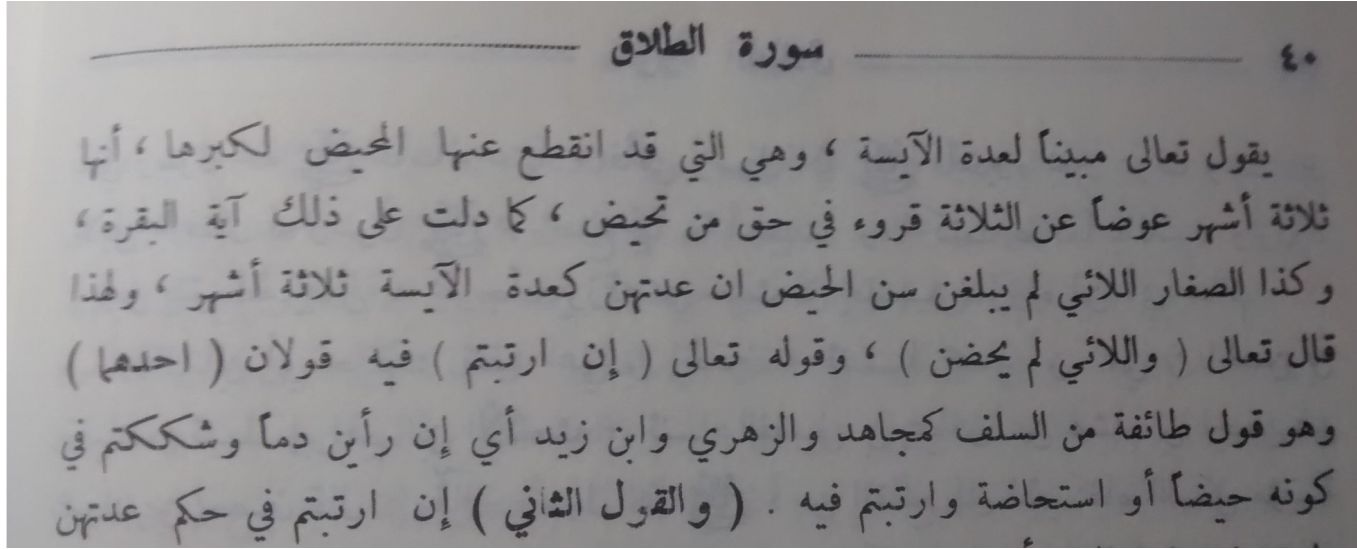 ٤٠ سورة الطلاق
يقول تعالى مبيناً لعدة الآيسة ، وهي التي قد انقطع عنها المحيض لكبرها ، أنها
ثلاثة أشهر عوضاً عن الثلاثة قروء في حق من تحيض ، كما دلت على ذلك آية البقرة ،
وكذا الصغار اللائي لم يبلغن سن الحيض ان عدتهن كعدة الآيسة ثلاثة أشهر ، ولهذا
قال تعالى ( واللائي لم يحضن ) ، وقوله تعالى ( إن ارتبتم ) فيه قولان ( احدهما )
وهو قول طائفة من السلف كمجاهد والزهري وابن زيد أي إن رأين دماً وشككتم في
كونه حيضاً أو استحاضة وارتبتم فيه . ( والقول الثاني ) إن ارتبتم في حكم عدتهن